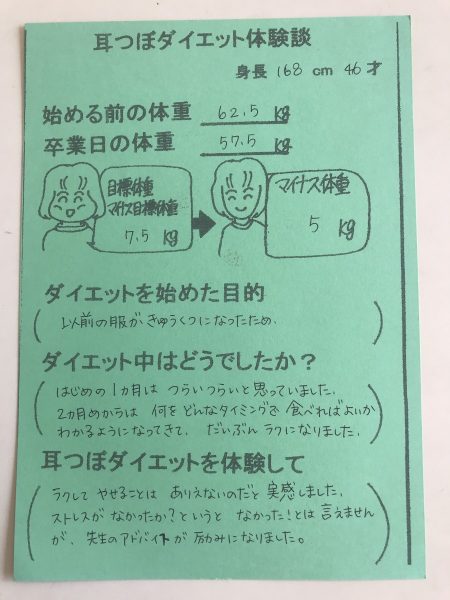 耳つぼダイエット体験談
身長 168 cm 46才
始める前の体重 62.5 kg
卒業日の体重 57.5 kg
目標体重
マイナス目標体重
7.5 kg
マイナス体重
5 kg
ダイエットを始めた目的
以前の服がきゅうくつになったため.
ダイエット中はどうでしたか？
はじめの1カ月は つらいつらいと思っていました.
2カ月めからは 何を どんなタイミングで 食べればよいか
わかるようになってきて. だいぶん ラクになりました.
耳つぼダイエットを体験して
ラクして やせることは ありえないのだと 実感しました.
ストレスが なかったか？というと なかった！とは 言えません
が、先生のアドバイスが 励みになりました。